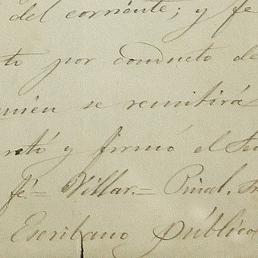 del corriente; y fe
por conducto de
se remitirá
y firmó el
fé = Villar. = Pinal.
Escribano público